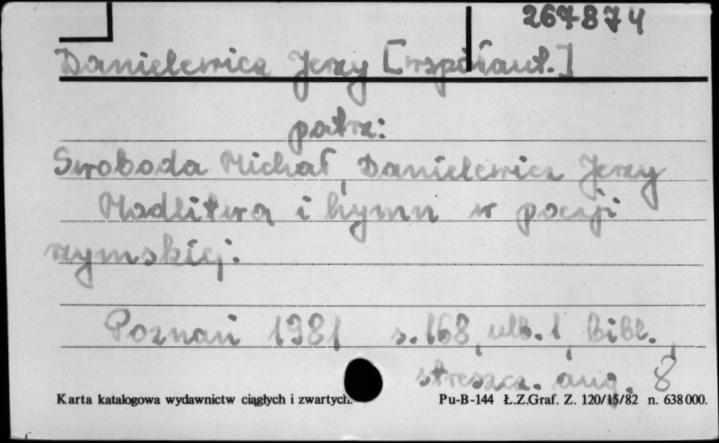 267874
Danielewicz Jerzy [współaut.]
patrz:
Swoboda Michał, Danielewicz Jerzy
Modlitwa i hymn w poezji
rzymskiej.
Poznań 1981 s. 168, nlb. 1, Bibl.,
streszcz. ang. 8
Karta katalogowa wydawnictw ciągłych i zwartych. Pu-B-144 Ł.Z.Graf. Z. 120/15/82 n. 638000.